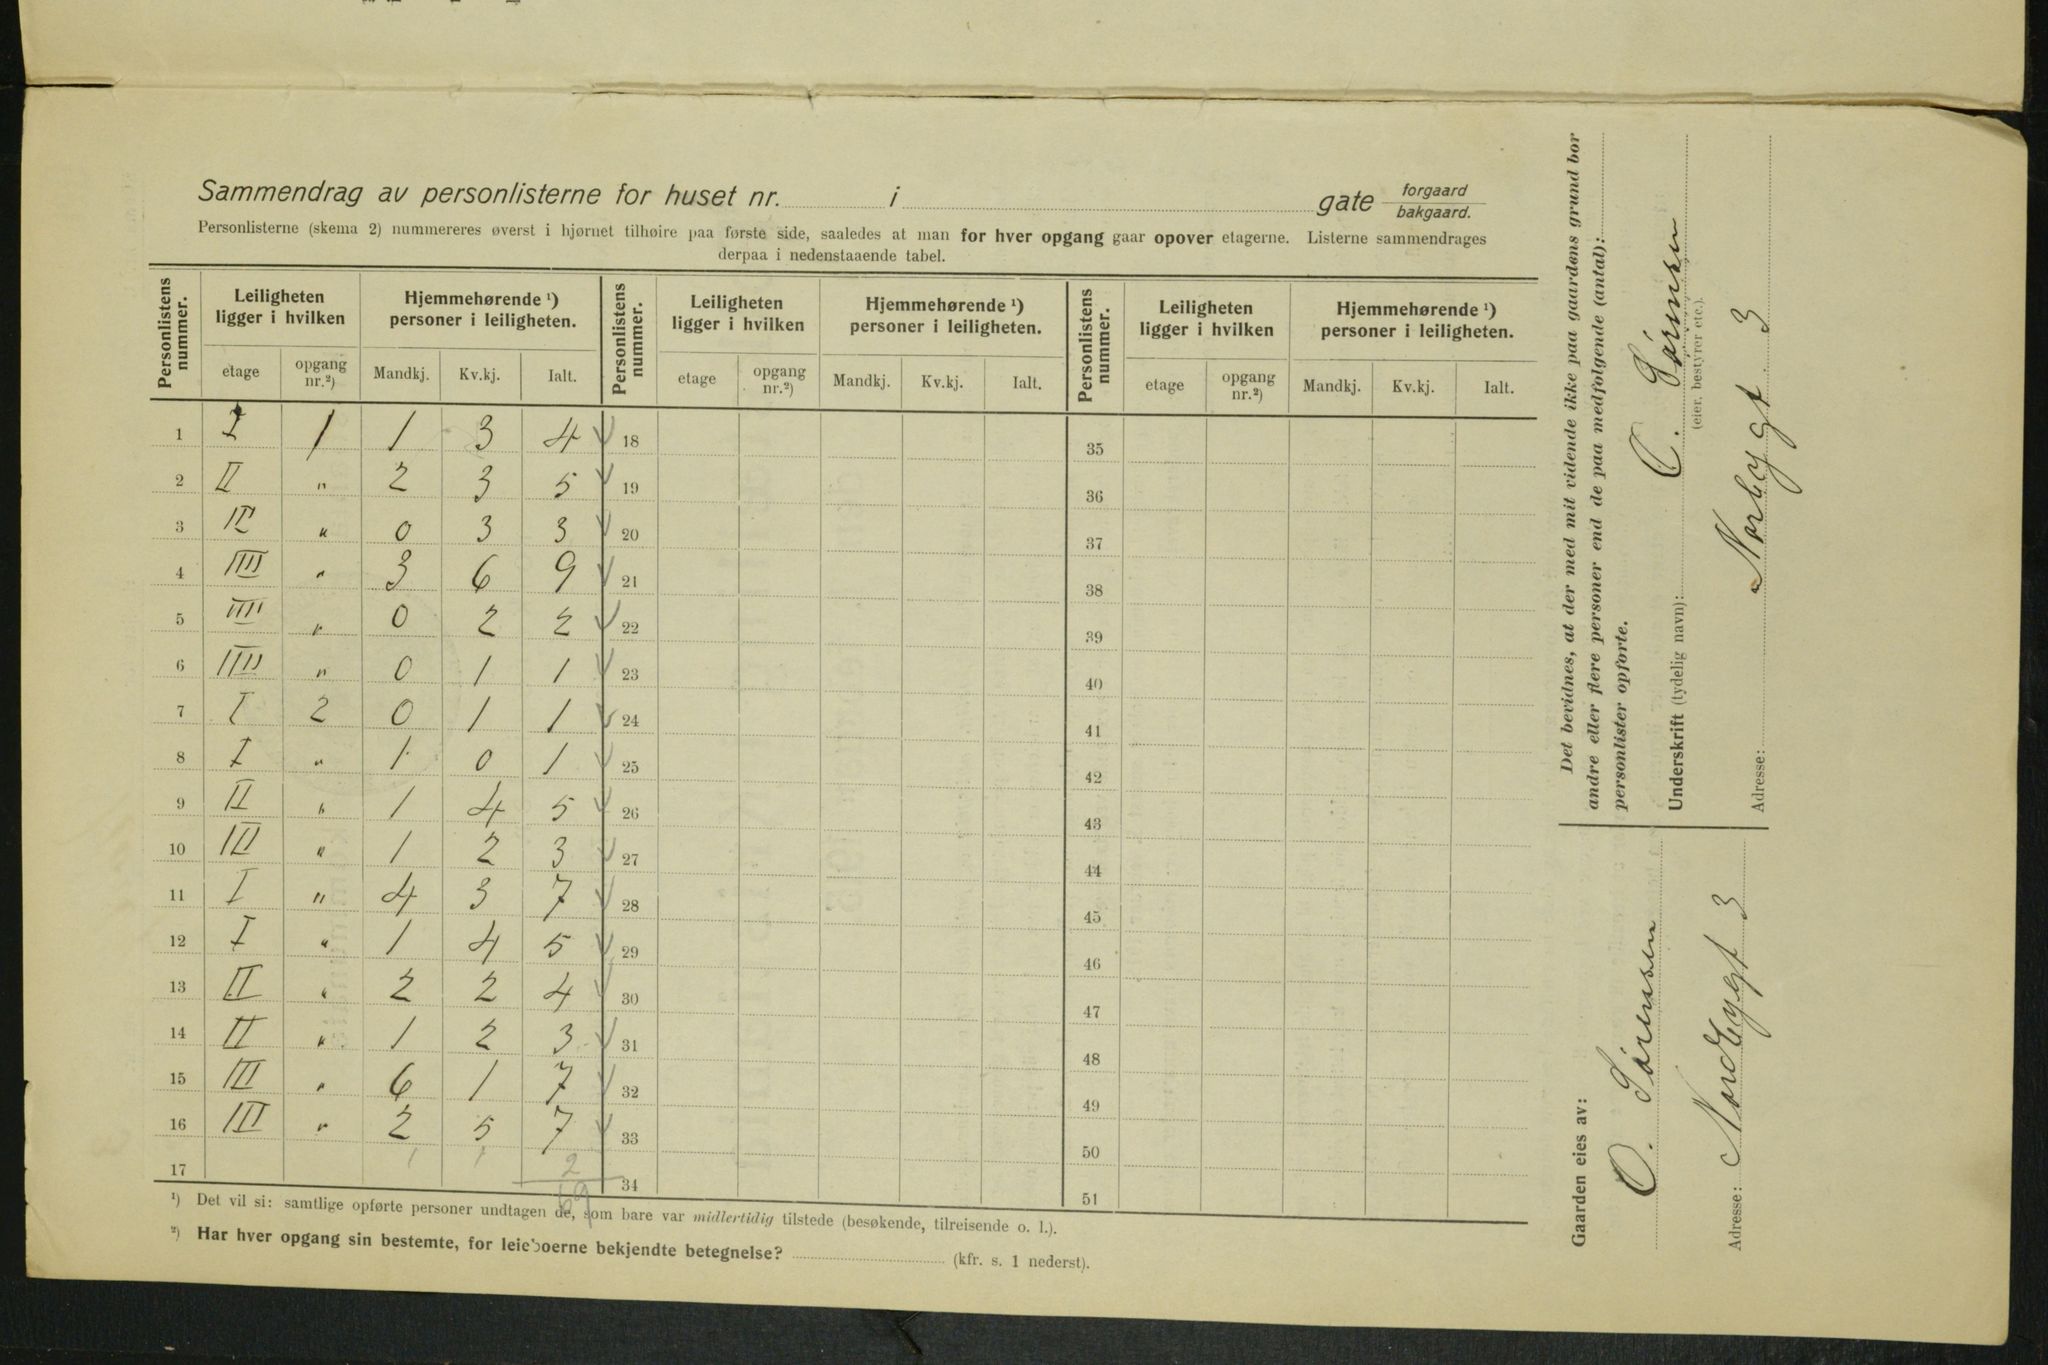 Sammendrag av personlisterne for huset nr. i gate forgaard bakgaard.
Personlisterne (skema 2) nummereres øverst i hjørnet tilhøire paa første side, saaledes at man for hver opgang gaar opover etagerne. Listerne sammendrages
derpaa i nedenstaaende tabel.
Personlistens nummer. Leiligheten ligger i hvilken Hjemmehørende ¹) personer i leiligheten. Personlistens nummer. Leiligheten ligger i hvilken Hjemmehørende ¹) personer i leiligheten. Personlistens nummer. Leiligheten ligger i hvilken Hjemmehørende ¹) personer i leiligheten.
etage opgang nr.²) Mandkj. Kv.kj. Ialt. etage opgang nr.²) Mandkj. Kv.kj. Ialt. etage opgang nr.²) Mandkj. Kv.kj. Ialt.
1 I 1 1 3 4 18 35
2 II " 2 3 5 19 36
3 " 0 3 3 20 37
4 III " 3 6 9 21 38
5 " 0 2 2 22 39
6 " 0 1 1 23 40
7 I 2 0 1 1 24 41
8 I " 1 0 1 25 42
9 II " 1 4 5 26 43
10 III " 1 2 3 27 44
11 I " 4 3 7 28 45
12 I " 1 4 5 29 46
13 II " 2 2 4 30 47
14 II " 1 2 3 31 48
15 III " 6 1 7 32 49
16 III " 2 5 7 33 50
17 1 1 2 34 51
69
¹) Det vil si: samtlige opførte personer undtagen de, som bare var midlertidig tilstede (besøkende, tilreisende o. l.).
²) Har hver opgang sin bestemte, for leieboerne bekjendte betegnelse? (kfr. s. 1 nederst).
Det bevidnes, at der med mit vidende ikke paa gaardens grund bor
andre eller flere personer end de paa medfølgende (antal):
personlister opførte.
Underskrift (tydelig navn): O. Sørensen
(eier, bestyrer etc.).
Adresse: Norbygt 3
Gaarden eies av:
O. Sørensen
Adresse: Nordbygt 3